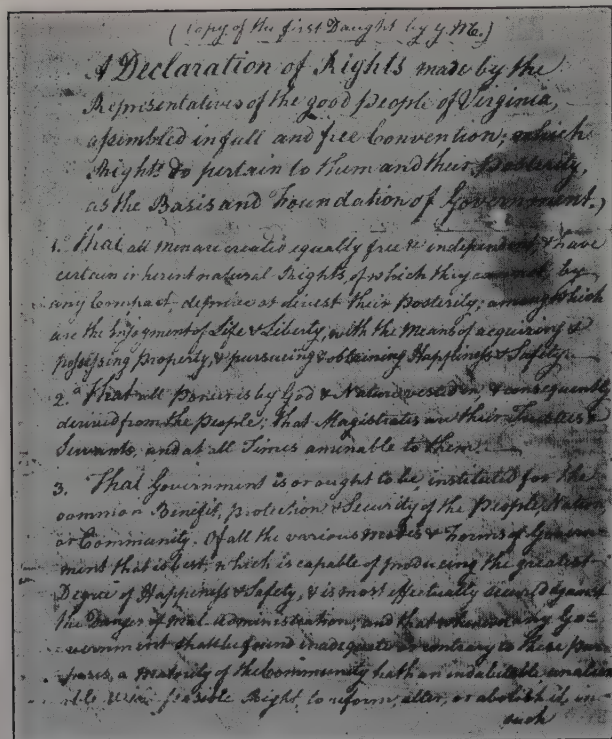 (Copy of the first Daught by G.M.)
A Declaration of Rights made by the
Representatives of the good People of Virginia,
assembled in full and free Convention; which
Rights do pertain to them and their Posterity,
as the Basis and Foundation of Government.
1. That all men are created equally free & independent & have
certain inherent natural Rights, of which they cannot, by
any Compact, deprive or divest their Posterity; among which
are the Enjoyment of Life & Liberty, with the Means of acquiring &
possessing Property, & pursueing & obtaining Happiness & Safety.
2. That all Power is by God & Nature vested in, & consequently
derived from the People; that Magistrates are their Trustees &
Servants, and at all Times amenable to them.
3. That Government is or ought to be instituted for the
common Benefit, Protection & Security of the People, Nation
or Community. Of all the various Modes & Forms of Govern-
ment that is best, which is capable of producing the greatest
Degree of Happiness & Safety, & is most effectually secured against
the Danger of mal-administration; and that whenever any Go-
vernment shall be found inadequate or contrary to these Pur-
poses, a Majority of the Community hath an indubitable
Right, to reform, alter, or abolish it, in
such